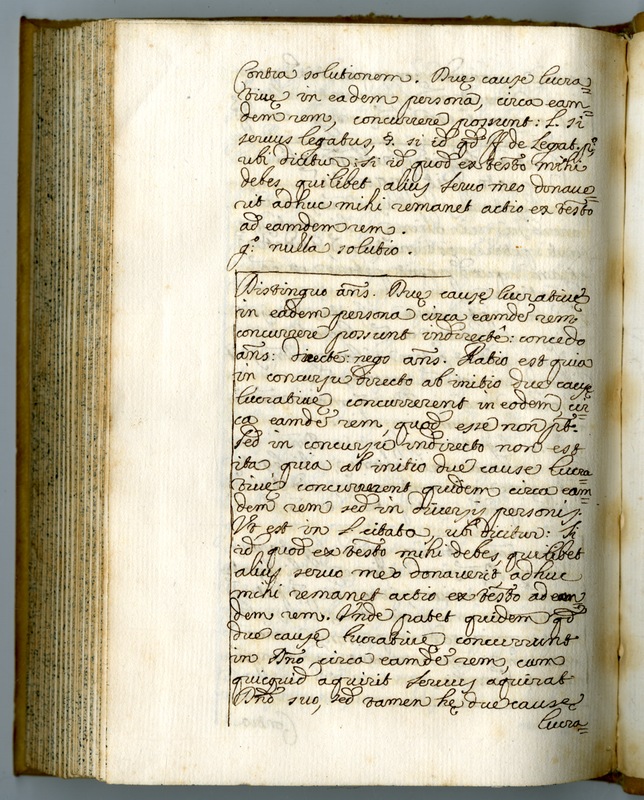 Contra solutionem. Duę cause lucra=
tivę in eadem persona, circa eam=
dem rem, concurrere possunt: L. si
servus legatus, §. si id qd ff de Legat. pº
ubi dicitur: si id quod ex testto mihi
debes, quilibet alius servo meo donave=
rit adhuc mihi remanet actio ex testto
ad eamdem rem.
gº: nulla solutio.
Distinguo ans. Duę causę lucrativę
in eadem persona circa eamdẽ rem
concurrere possunt indirectẽ: concedo
ans: directẽ: nego ans. Ratio est quia
in concursu directo ab initio due causę
lucrativę concurrerent in eodem cir=
ca eamdẽ rem, quod esse non pt.
Sed in concursu indirecto non est
ita quia ab initio due cause lucra=
tivę concurrerent quidem circa eam=
dem rem sed in diversis personis.
Vt est in L. citata, ubi dicitur: Si
id quod ex testto mihi debes, quilibet
alius servo meo donaverit adhuc
mihi remanet actio ex testto ad eam=
dem rem. Vnde patet quidem qd
due causę lucrativę concurrunt
in Dño circa eamdẽ rem, cum
quicquid aquirit servus aquirat
Dño suo, sed tamen hę due causę
lucra=